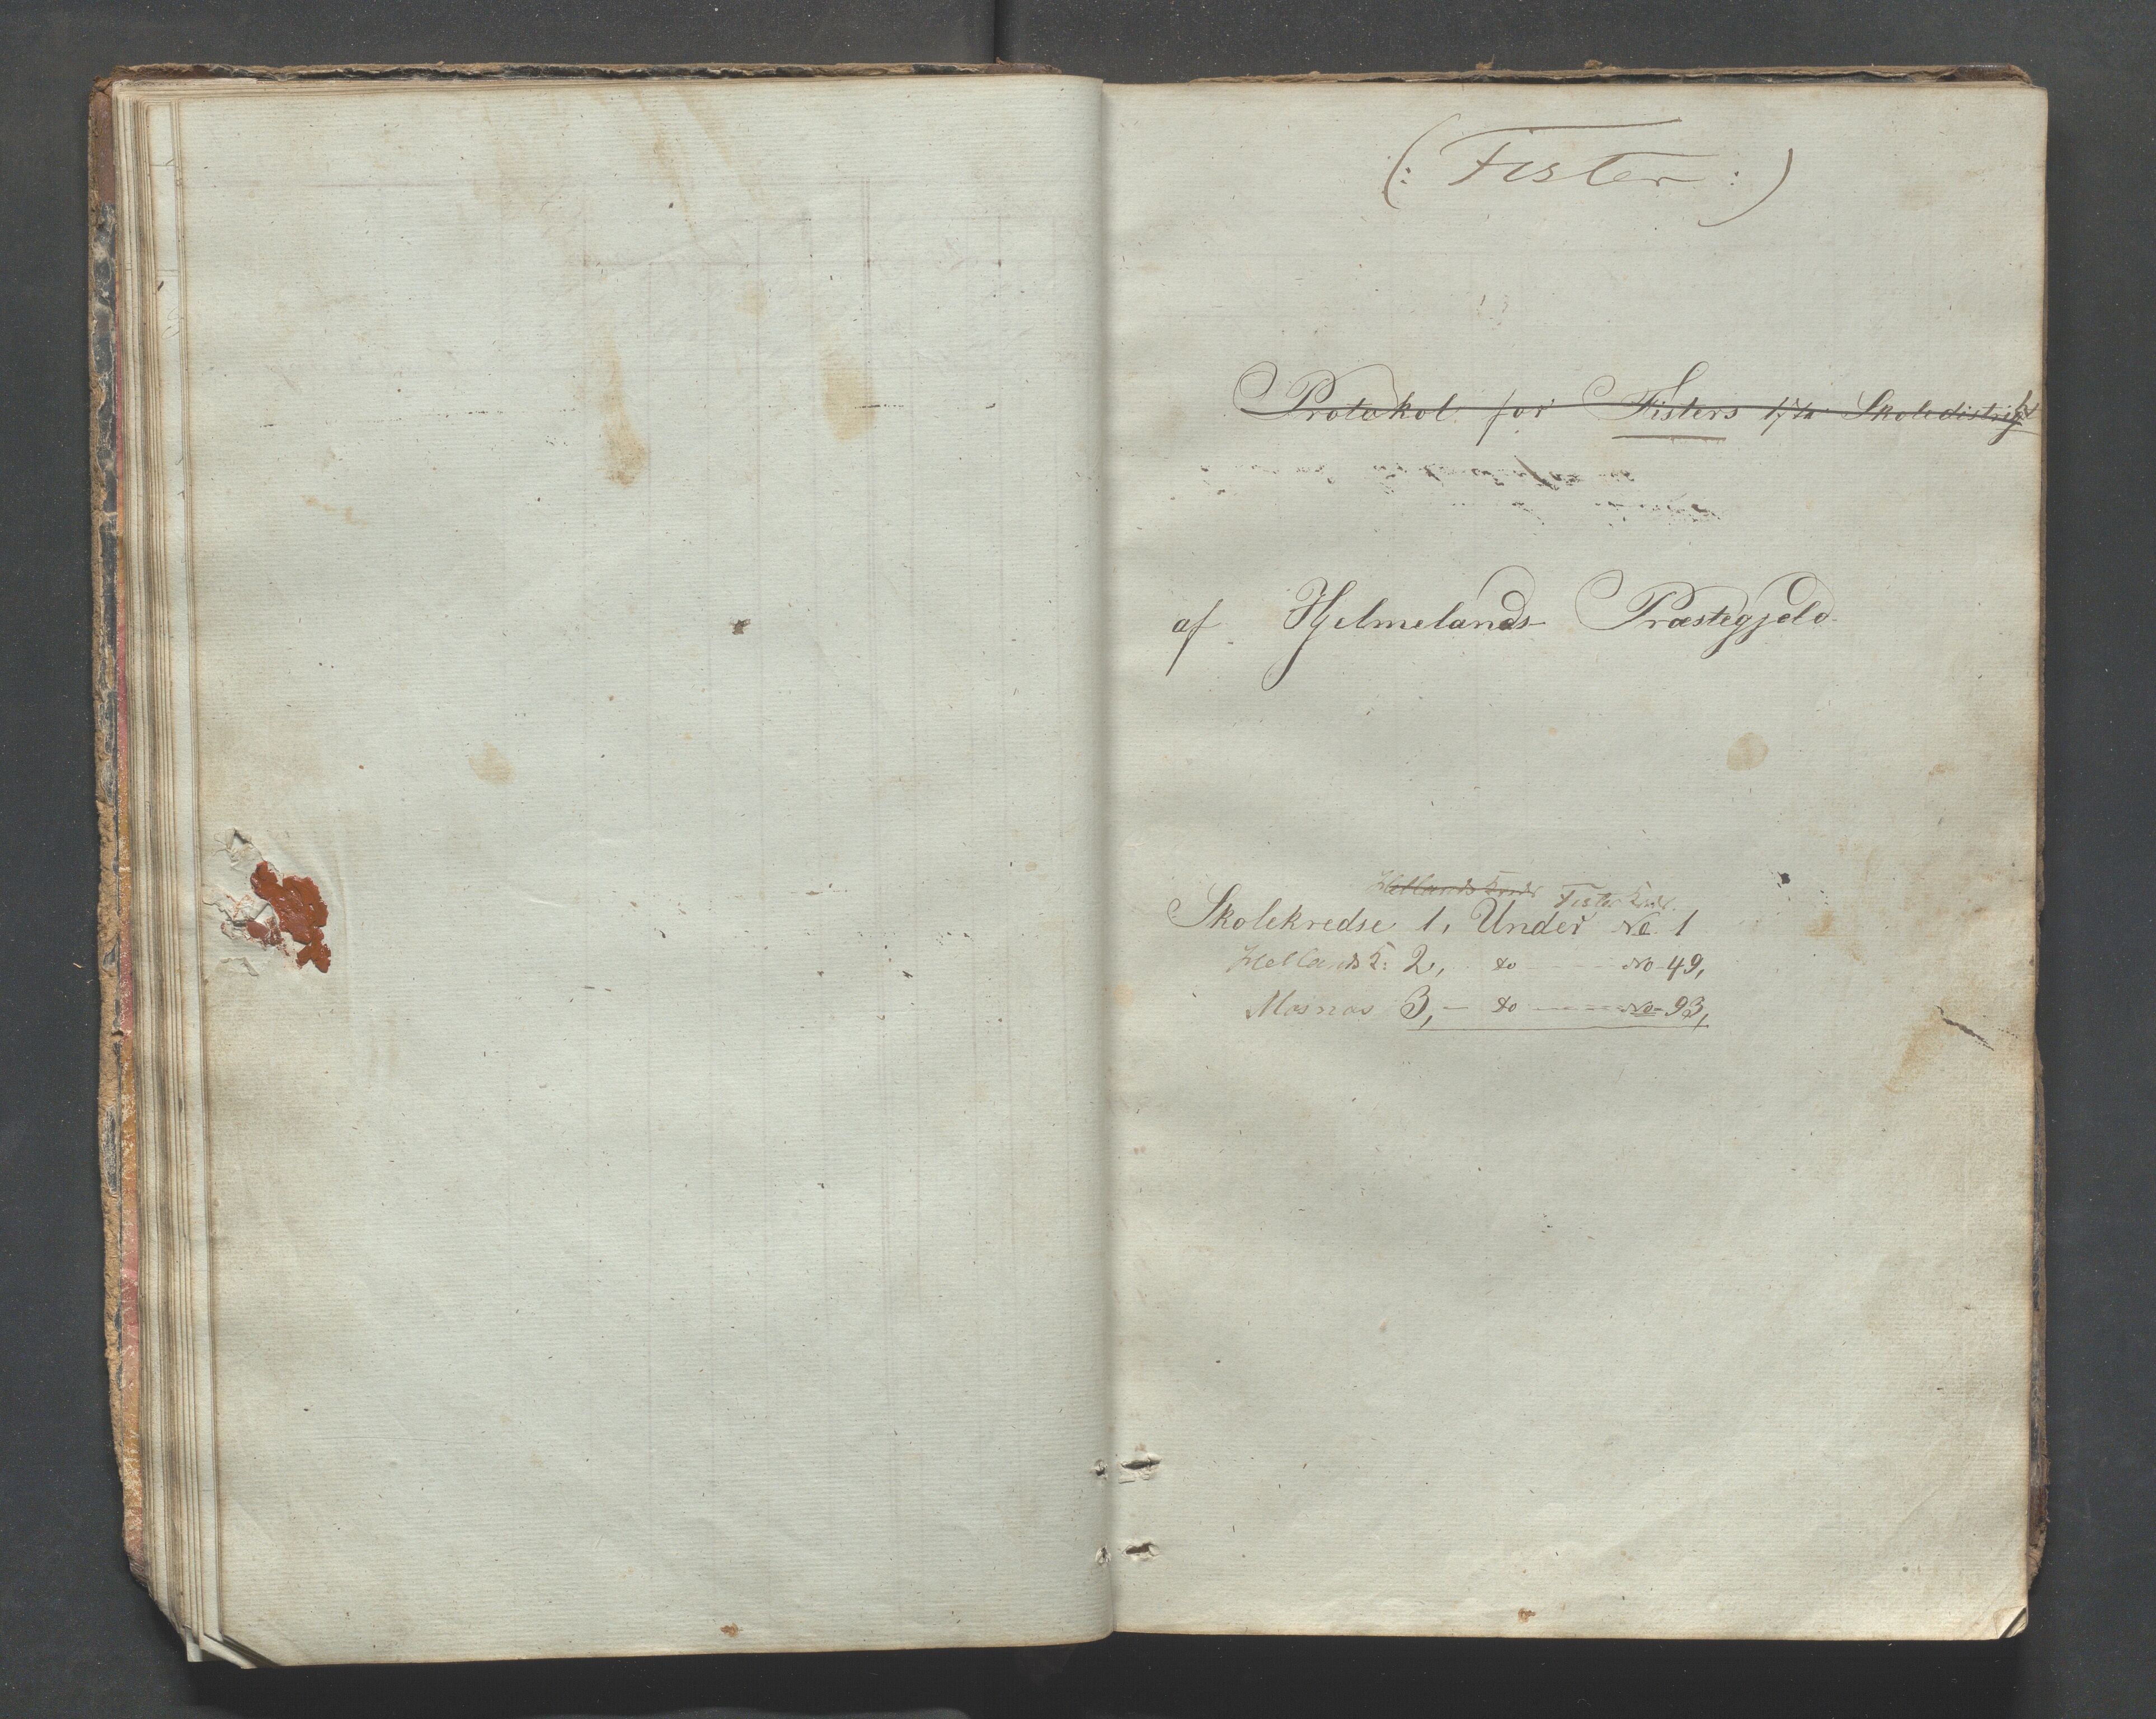 (: Fister :)
Protokol for Fisters Skoledistrikt
af Hjelmelands Præstegjeld
Hellands Kreds Fister Kreds.
Skolekredse 1, Under No 1
Hellands K: 2, do No 49,
Mosnæs 3, do No 93,